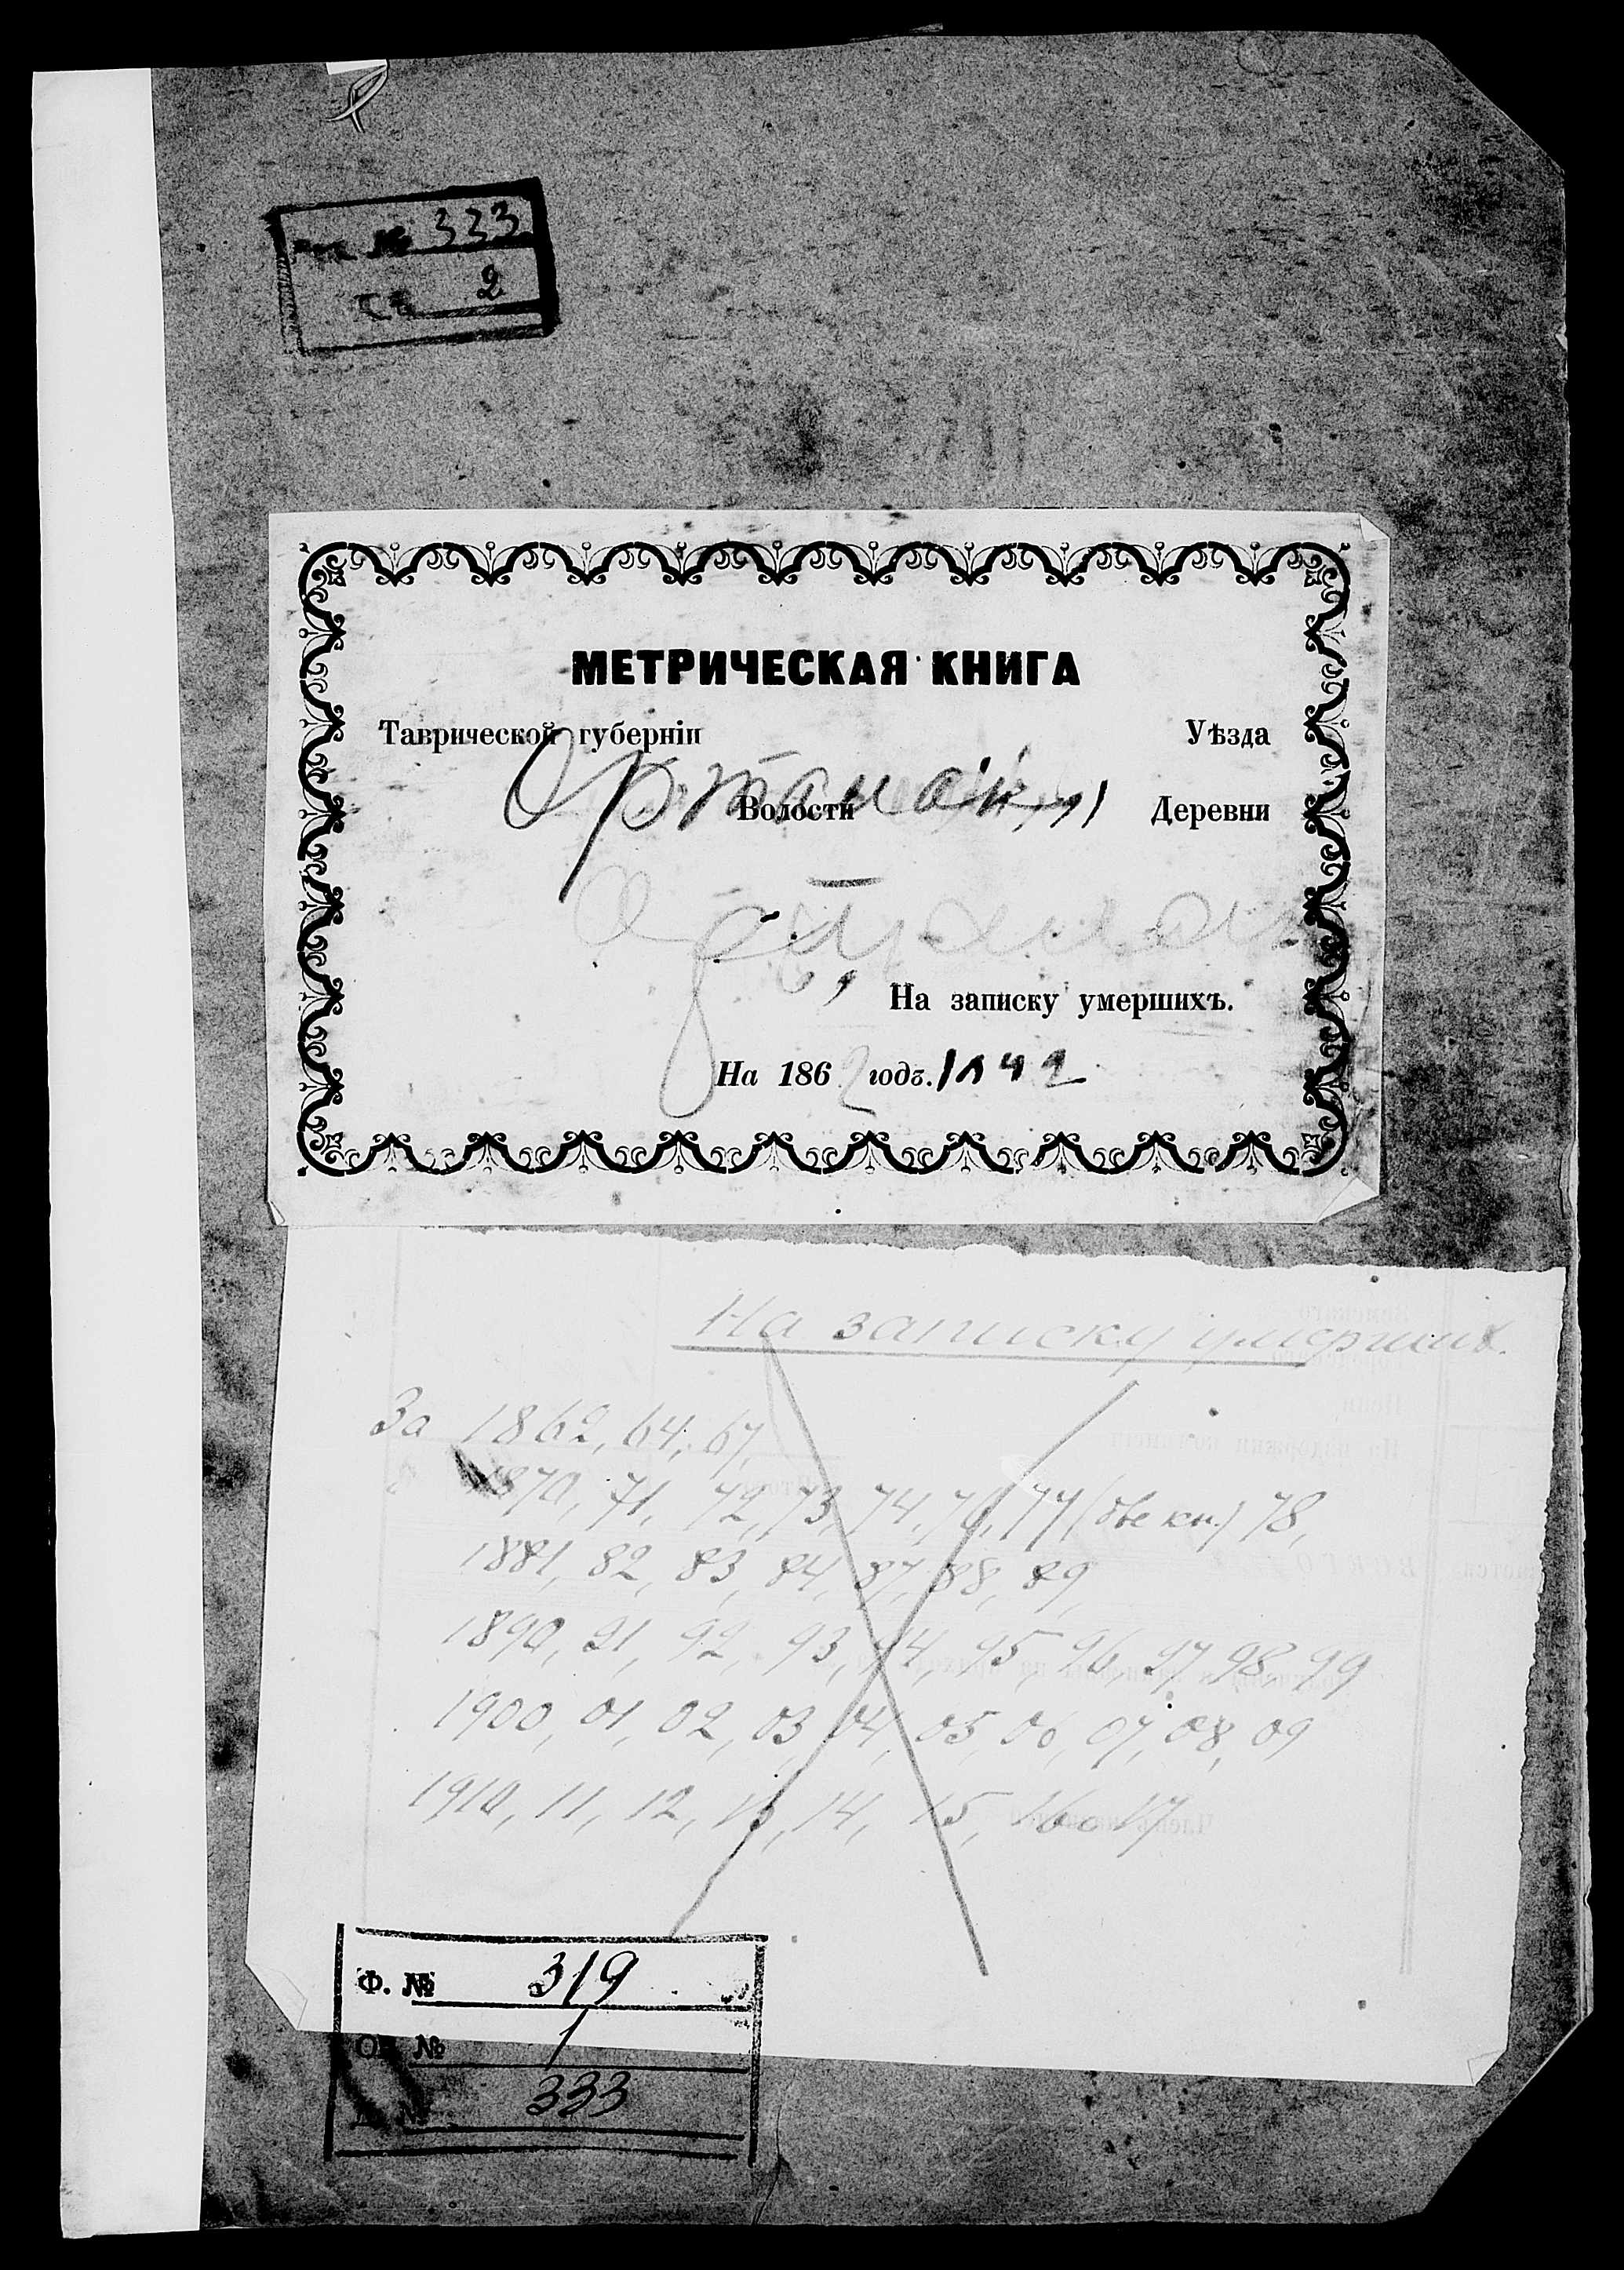 № 333
2
МЕТРИЧЕСКАЯ КНИГА
Таврической губерніи Уѣзда
Волости Деревни
На записку умершихъ.
На 1862 годъ.
На записку умерших.
За 1862, 64, 67,
1870, 71, 72, 73, 74, 76, 77 (две кн.) 78,
1881, 82, 83, 84, 87, 88, 89,
1890, 91, 92, 93, 94, 95, 96, 97, 98, 99
1900, 01, 02, 03, 04, 05, 06, 07, 08, 09
1910, 11, 12, 13, 14, 15, 16 17
Ф. № 319
Оп № 1
333